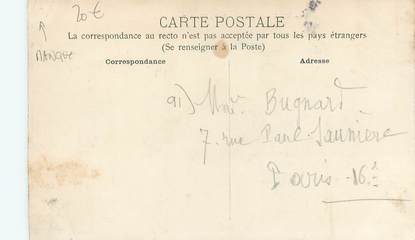 20€
MANQUE
CARTE POSTALE
La correspondance au recto n'est pas acceptée par tous les pays étrangers
(Se renseigner à la Poste)
Correspondance
Adresse
91) Mme. Bugnard
7. rue Paul-Saunière
Paris - 16è